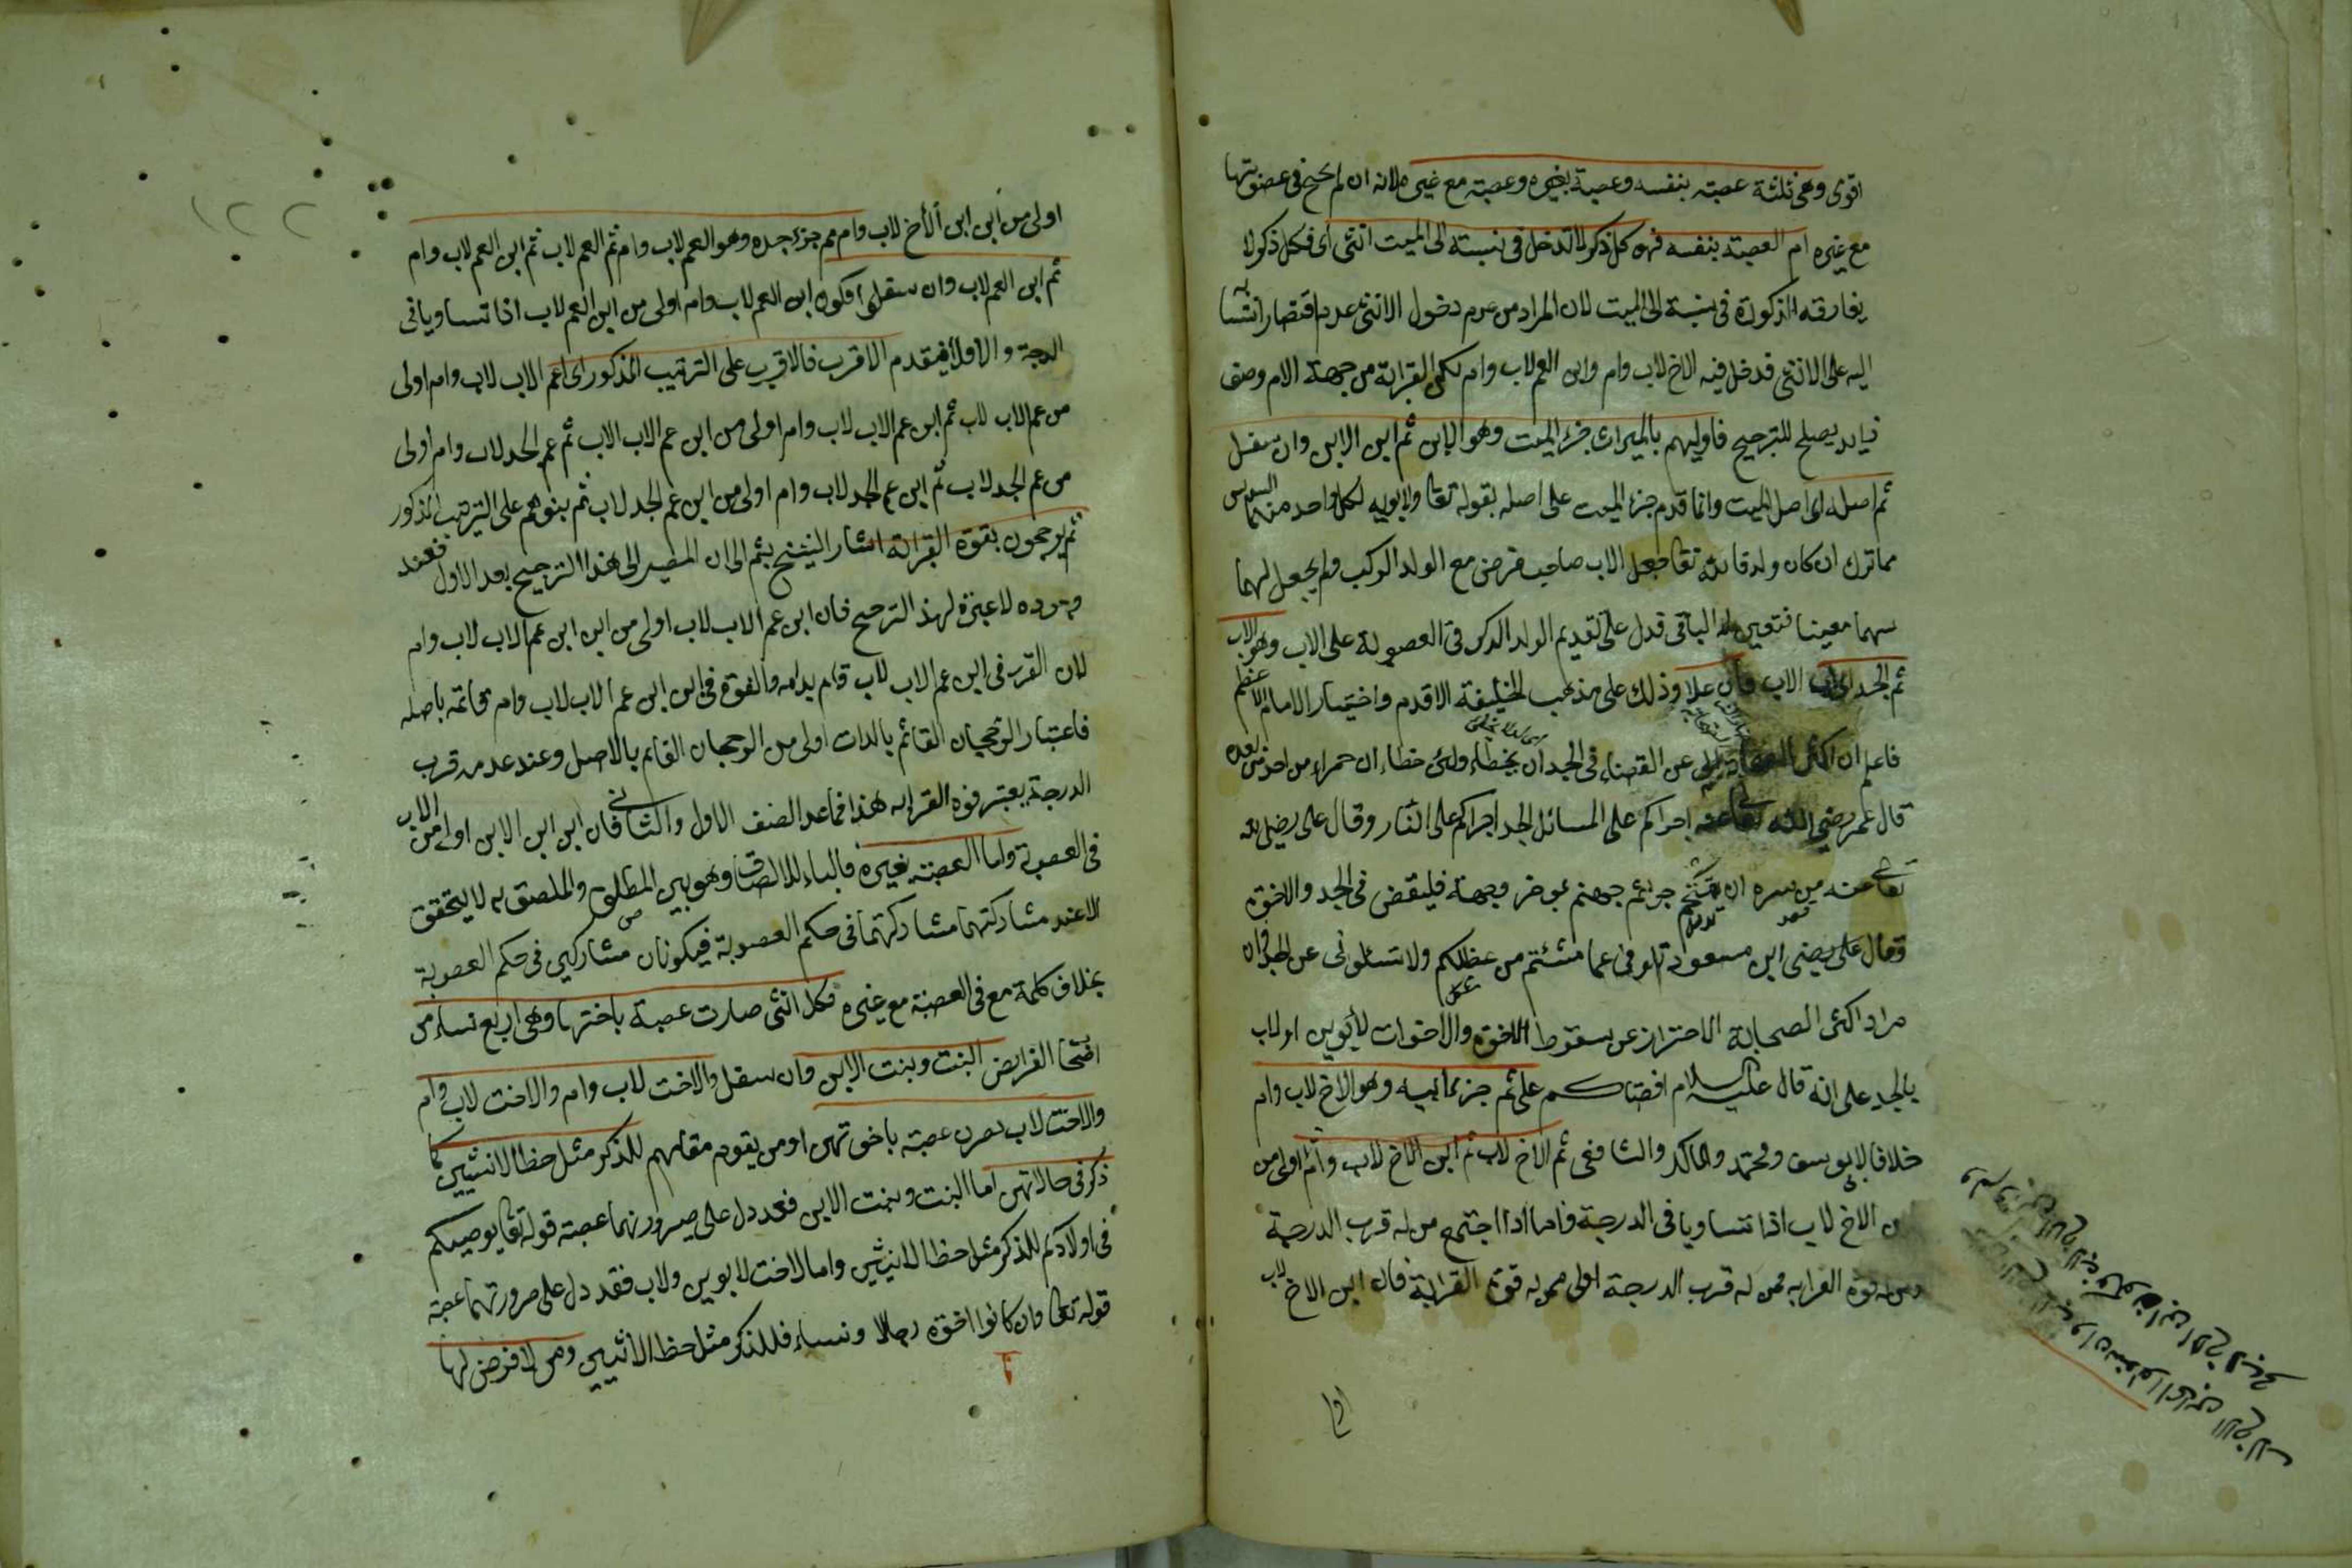 اقوى وهى ثلثة عصبة بنفسه وعصبة بغيره وعصبة مع غيره لانه ان لم يحتج فى عصوبتها
مع غيره ام العصبة بنفسه فهو كل ذكر لا تدخل فى نسبته الى الميت انثى اى فكل ذكر لا
يفارقه الذكورة فى نسبة الى الميت لان المراد من عدم دخول الانثى عدم اقتصار انتسا
اليه على الانثى فدخل فيه الاخ لاب وام وابن العم لاب وام لكن القرابة من جهة الام وصف
زايد يصلح للترجيح فاوليهم بالميراث جزء الميت وهو الابن ثم ابن الابن وان سفل
ثم اصله اى اصل الميت وانما قدم جزء الميت على اصله لقوله تعا ولابويه لكل واحد منهما السدس
مما ترك ان كان ولد فانه تعا جعل الاب صاحب فرض مع الولد الذكر ولم يجعل لهما
سهما معينا فتعين له الباقى فدل على تقديم الولد الذكر فى العصوبة على الاب وهو الاب
ثم الجد اى اب الاب وان علا وذلك على مذهب الخليفة الاقدم واختيار الامام الاعظم
فاعلم ان اكثر الصحابة عن القضاء فى الجد ان يخطأ ولئن خطاء ان حمراء من
قال عمر رضى الله تعا عنه اجراكم على المسائل الجد اجراكم على النار وقال على رضى الله
تعالى عنه من سره ان يقتحم جراثم جهنم بحر وجهه فليقض فى الجد والاخوة
وقال على رضى ابن مسعود عما شئتم من عظلكم ولا تسئلونى عن الجد فان
مراد اكثر الصحابة الاحتراز عن سقوط الاخوة والاخوات لابوين او لاب
بالجد على انه قال عليه السلام اقضاكم على ثم جزء ابيه وهو الاخ لاب وام
خلافا لابى يوسف ومحمد والمالك والشافعى ثم الاخ لاب ثم ابن الاخ لاب وام اولى من
ابن الاخ لاب اذا تساويا فى الدرجة فاما اذا اجتمع من له قرب الدرجة
ومن له قوة القرابه فمن له قرب الدرجة اولى ممن له قوة القرابة فان ابن الاخ لاب
اولى من ابن ابن الأخ لاب وام ثم جزء جده وهو العم لاب وام ثم العم لاب ثم ابن العم لاب وام
ثم ابن العم لاب وان سفلوا فكون ابن العم لاب وام اولى من ابن العم لاب اذا تساويا فى
الدرجة والا فلا فيقدم الاقرب فالاقرب على الترتيب المذكور اى اعم الاب لاب وام اولى
من عم الاب لاب ثم ابن عم الاب لاب وام اولى من ابن عم الاب الاب ثم عم الجد لاب وام اولى
من عم الجد لاب ثم ابن عم الجد لاب وام اولى من ابن عم الجد لاب ثم بنوهم على الترتيب المذكور
ثم يرجحون بقوة القرابة اشار الشيخ بثم الى ان المصير الى هذا الترجيح بعد الاول فعند
وجوده لا عبرة لهذ الترجيح فان ابن عم الاب لاب اولى من ابن ابن عم الاب لاب وام
لان القرب فى ابن عم الاب لاب قام بذاته والقوة فى ابن ابن عم الاب لاب وام قائمة باصله
فاعتبار الرجحان القائم بالذات اولى من الرجحان القايم بالاصل وعند عدم قرب
الدرجة يعتبر قوة القرابه هذا فماعد الصنف الاول والثانى فان ابن ابن الابن اولى من الاب
فى العصوبة واما العصبة بغيره فالباء للالصاق وهو بين الملصق والملصق به لا يتحقق
الا عند مشاركتهما مشاركتهما فى حكم العصوبة فيكونان مشاركين فى حكم العصوبة
بخلاف كلمة مع فى العصبة مع غيره فكل انثى صارت عصبة باختها وهى اربع نساء من
اصحا الفرايض البنت وبنت الابن وان سفل والاخت لاب وام والاخت لاب وام
والاخت لاب يصرن عصبة باخوتهن او من يقوم مقامهم للذكر مثل حظ الانثيين كما
ذكر فى حالاتهن اما البنت وبنت الابن فقد دل على صيرورتهما عصبة قوله تعا يوصيكم
فى اولادكم للذكر مثل حظ الانثيين واما الاخت لابوين ولاب فقد دل على صرورتهما عصبة
قوله تعا وان كانوا اخوة رجالا ونساء فللذكر مثل حظ الانثيين ومن لا فرض لها
١٢٢